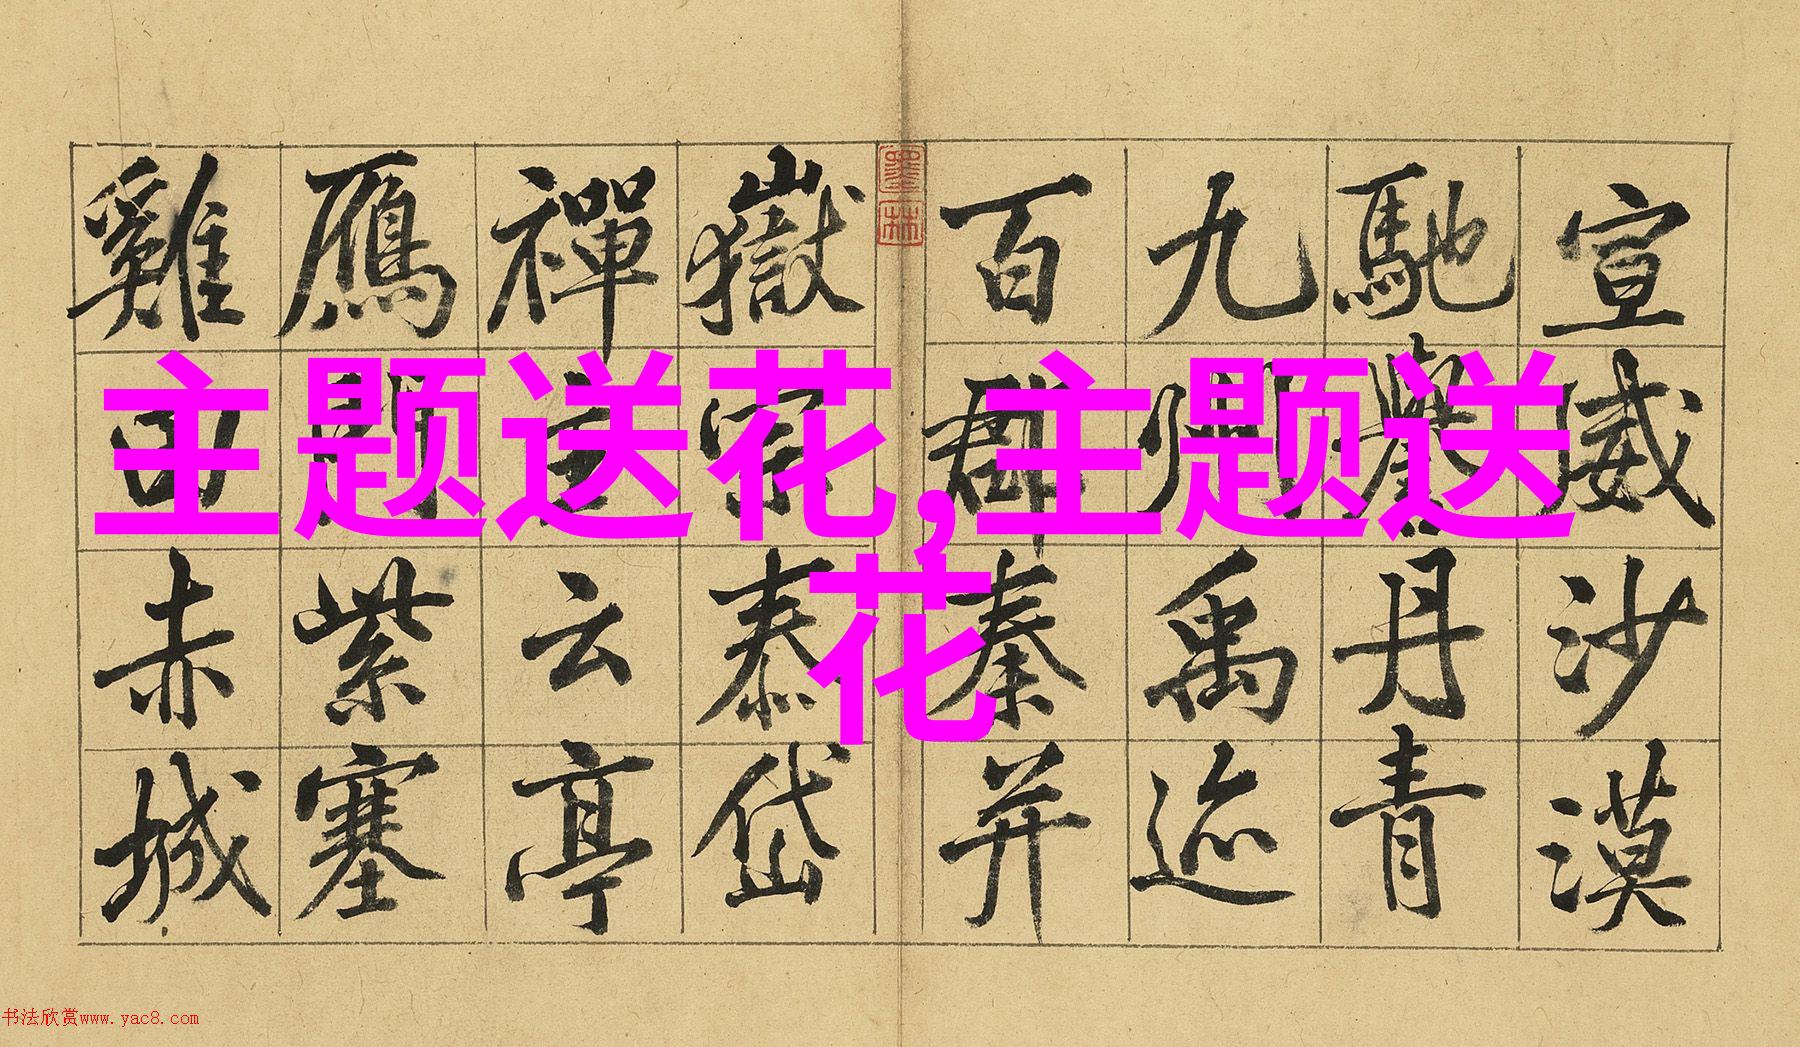 宣威沙漠
馳譽丹青
九州禹迹
百郡秦并
墨林
嶽宗泰岱
禪主云亭
鴈門紫塞
雞田赤城
主题送花,主题送
花
书法欣赏www.yac8.com